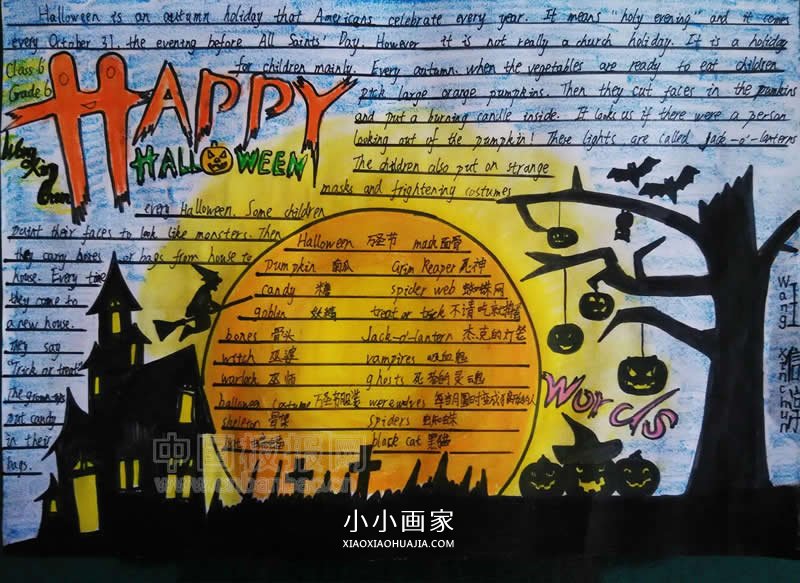 Halloween is an autumn holiday that Americans celebrate every year. It means "holy evening" and it comes
every October 31, the evening before All Saints' Day. However it is not really a church holiday. It is a holiday
for children mainly. Every autumn, when the vegetables are ready to eat children
pick large orange pumpkins. Then they cut faces in the pumkins
and put a burning candle inside. It looks us if there were a person
looking out of the pumpkin! These lights are called Jack-o'-lanterns
The children also put on strange
masks and frightening costumes
every Halloween. Some children
paint their faces to look like monsters. Then
they carry boxes or bags from house to
house. Every time
they come to
a new house.
they say
"Trick or treat!
The grown-ups
put candy
in their
bags.
Class 6
Grade 6
HAPPY
HALLOWEEN
Halloween 万圣节 mask 面膏
pumpkin 南瓜 Grim Reaper 死神
candy 糖 spider web 蜘蛛网
goblin 妖精 treat or trick 不请吃就捣蛋
bones 骨头 Jack-o'-lantern 杰克的灯笼
witch 巫婆 vampires 吸血鬼
warlock 巫师 ghosts 死者的灵魂
halloween costume 万圣节服装 werewolves
skeleton 骨架 spiders 蜘蛛
black cat 黑猫
Words
Wang
中国板报网
小小画家
XIAOXIAOHUAJIA.COM